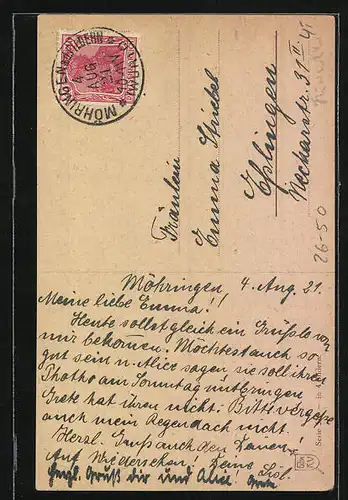 MÖHRINGEN a. d. FILDERN
4 AUG
Fräulein
Emma
Esslingen
Neckarstr. 31 II
26-50
Möhringen, 4. Aug. 21.
Meine liebe Emma!!
Heute sollst gleich ein Grüßle von
mir bekommen. Möchtest auch so
gut sein u. Alice sagen sie soll ihren
Photho am Sonntag mitbringen
Grete hat ihren nicht. Bitte vergesse
auch mein Regendach nicht.
Herzl. Gruß auch den Deinen!
Auf Wiedersehen Deine
Hrzl. Gruß dir und Alice. Grete
Serie